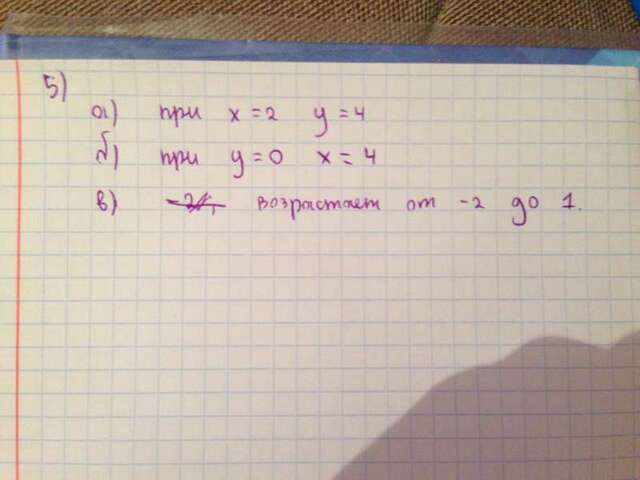 5)
а) при x = 2 y = 4
б) при y = 0 x = 4
в) возрастает от -2 до 1.